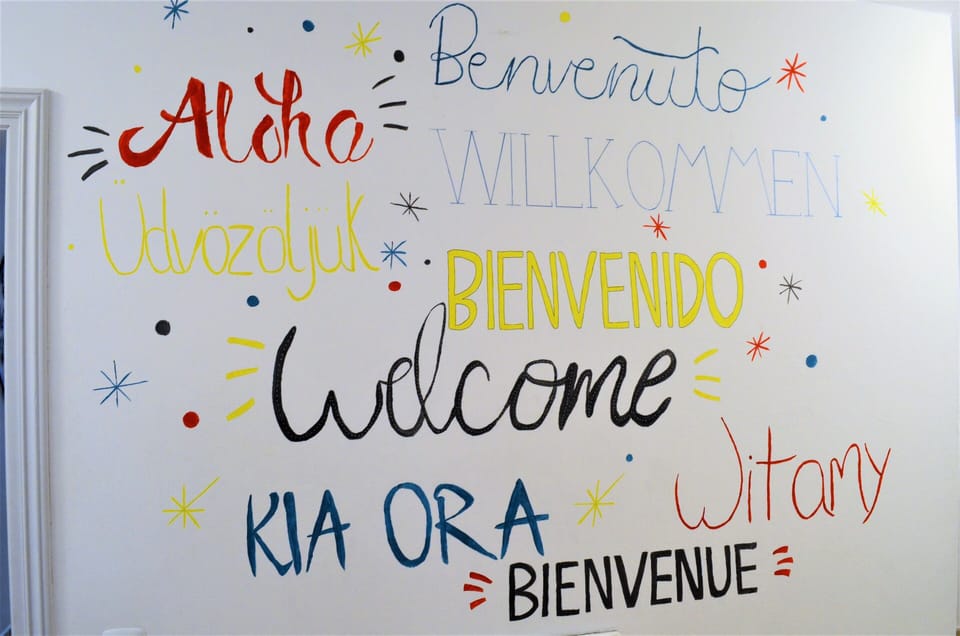 Benvenuto
Aloha
WILLKOMMEN
Üdvözöljük
BIENVENIDO
Welcome
Witamy
KIA ORA
BIENVENUE